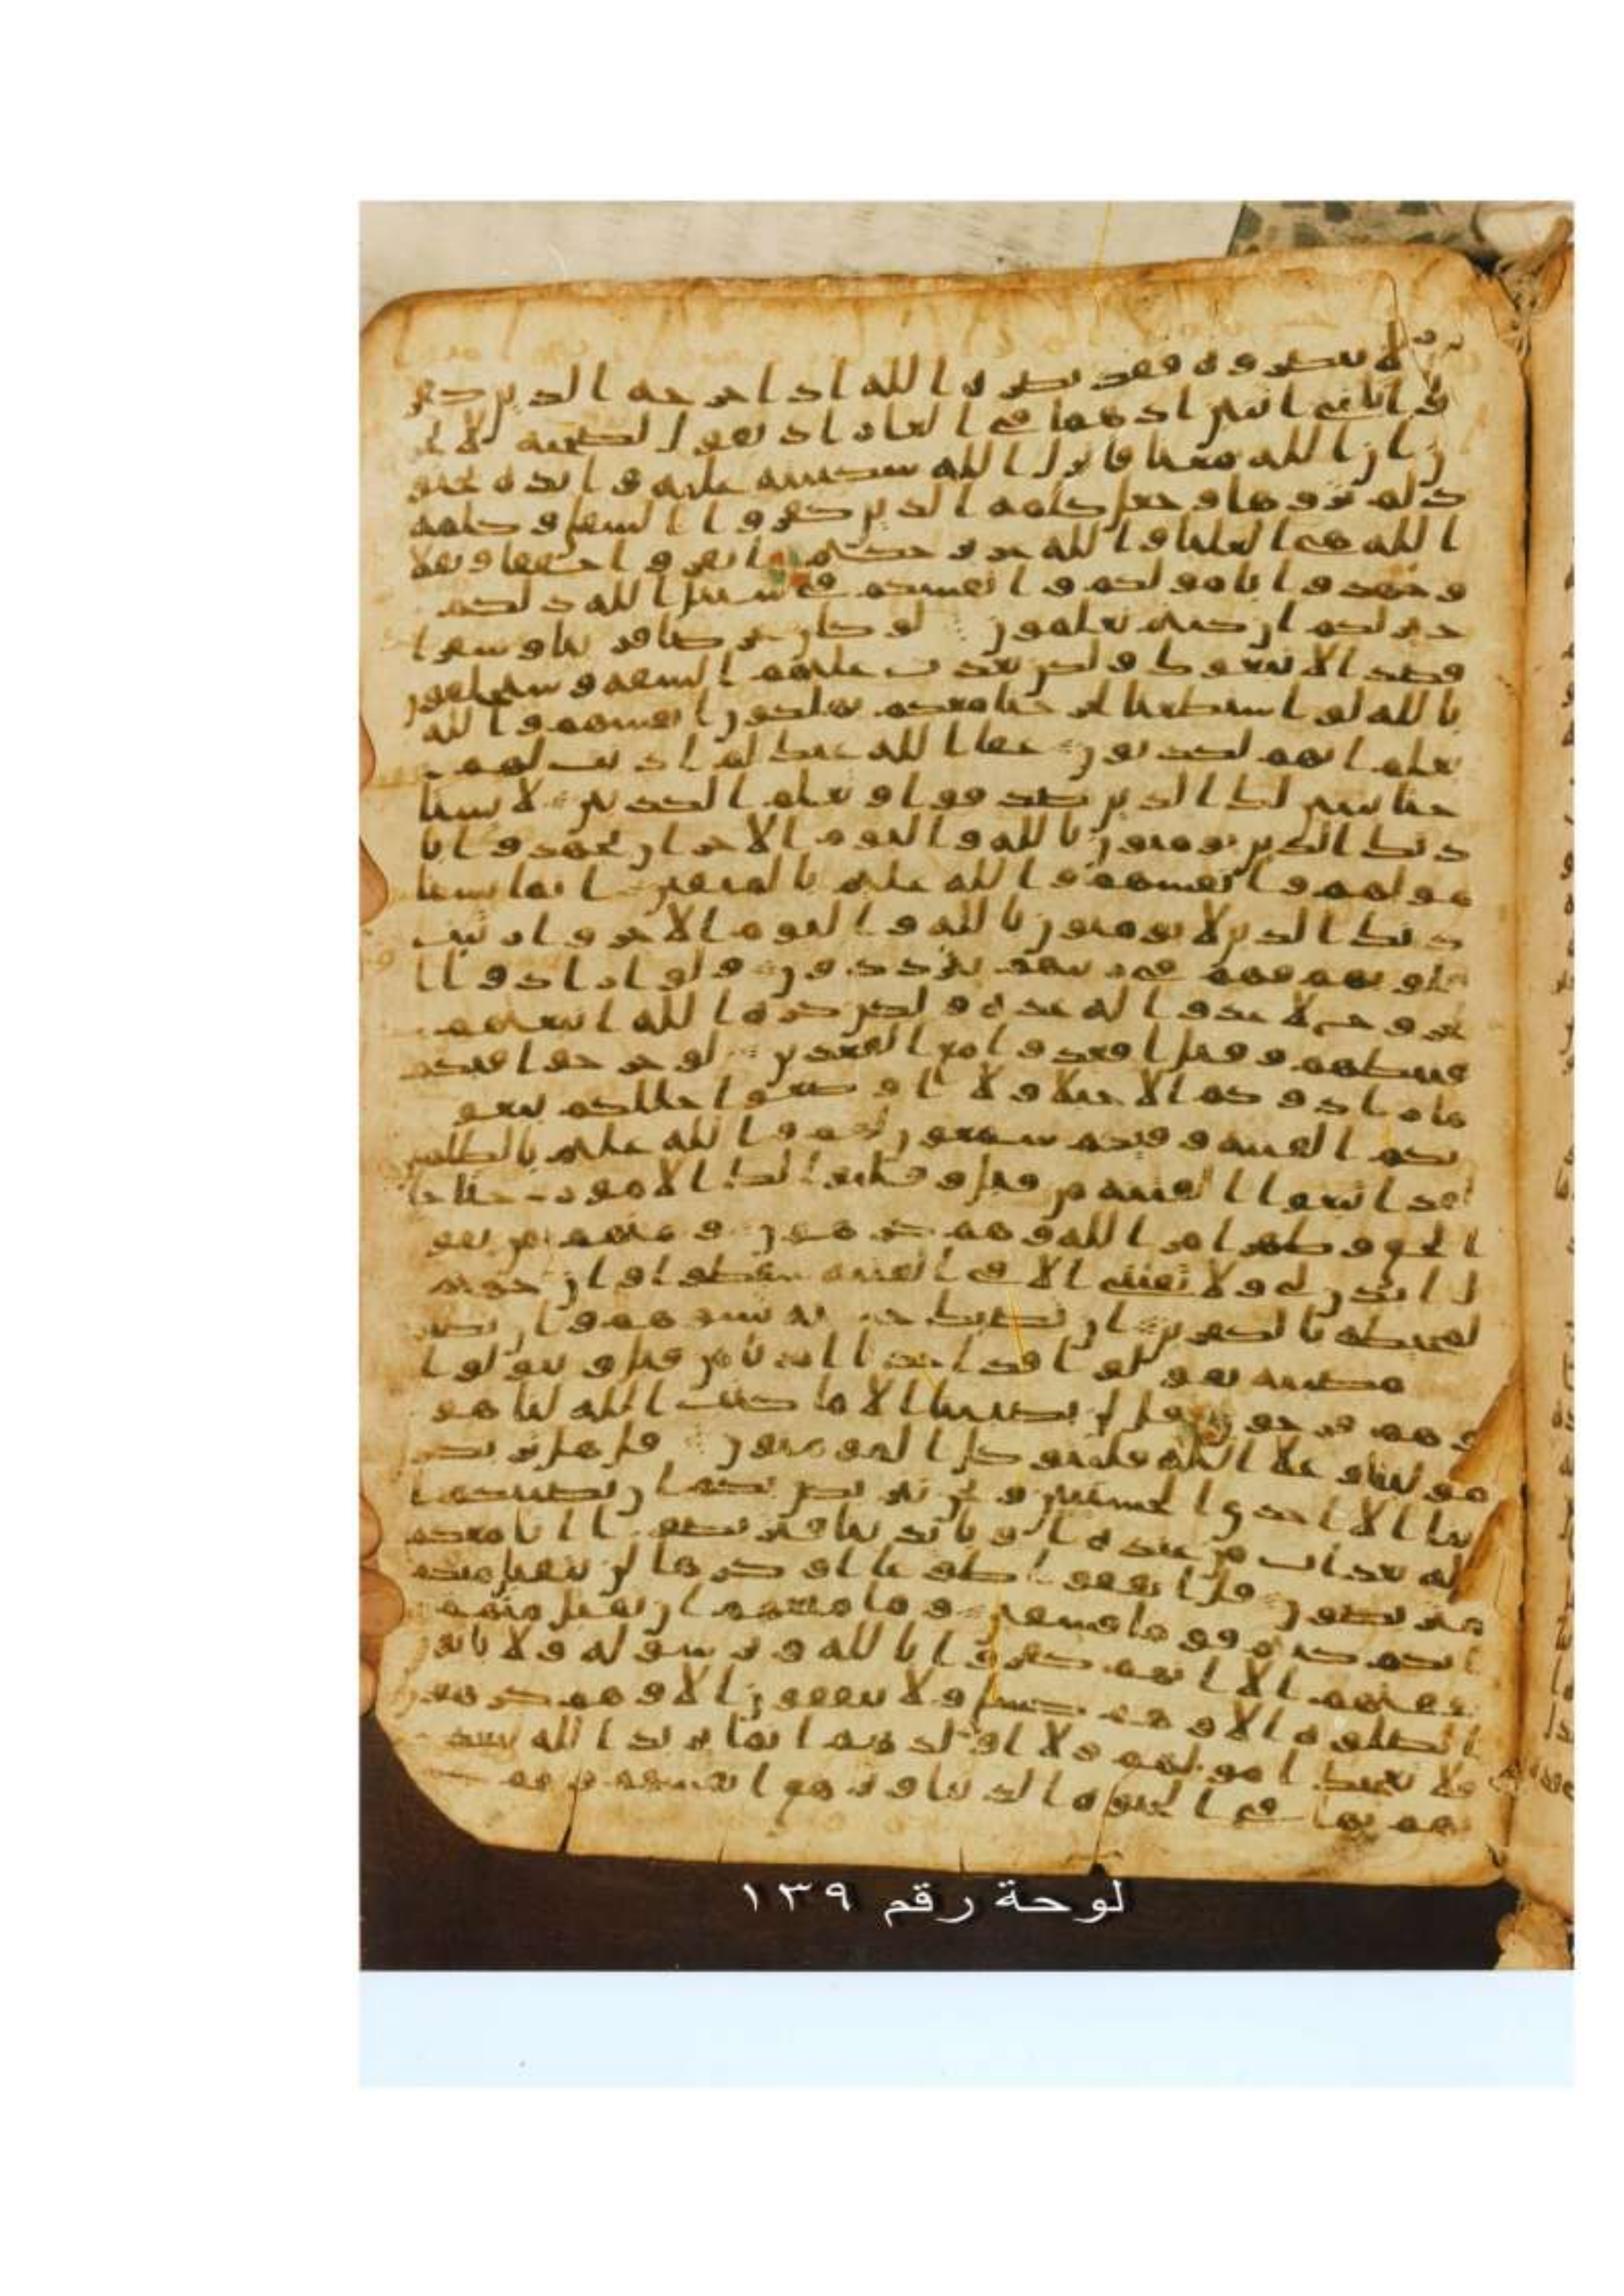 لا تنصروه فقد نصره الله اذ اخرجه الذين كفر
وا ثاني اثنين اذ هما في الغار اذ يقول لصحبه لا تحز
ن ان الله معنا فانزل الله سكينته عليه وايده بجنو
د لم تروها وجعل كلمه الذين كفروا السفلى وكلمه
الله هي العليا والله عزيز حكيم انفروا خفافا وثقلا
وجهدوا بامولكم وانفسكم في سبيل الله ذلكم
خير لكم ان كنتم تعلمون لو كان عرضا قريبا وسفرا
قصدا لاتبعوك ولكن بعدت عليهم الشقه وسيحلفون
بالله لو استطعنا لخرجنا معكم يهلكون انفسهم والله
يعلم انهم لكذبون عفا الله عنك لم اذنت لهم
حتا يتبين لك الذين صدقوا وتعلم الكذبين لا يستا
ذنك الذين يومنون بالله واليوم الاخر ان يجهدوا با
مولهم وانفسهم والله عليم بالمتقين انما يستا
ذنك الذين لا يومنون بالله واليوم الاخر وارتبت
قلوبهم فهم في ريبهم يترددون ولو ارادوا ا
لخروج لاعدوا له عده ولكن كره الله انبعثهم
فثبطهم وقيل اقعدوا مع القعدين لو خرجوا فيكم
ما زادوكم الا خبلا ولا اوضعوا خللكم يبغو
نكم الفتنه وفيكم سمعون لهم والله عليم بالظلمين
لقد ابتغوا الفتنه من قبل وقلبوا لك الامور حتا جا
الحق وظهر امر الله وهم كرهون ومنهم من يقو
ل ايذن لي ولا تفتني الا في الفتنه سقطوا وان جهنم
لمحيطه بالكفرين ان تصبك حسنه تسوهم وان تصبك
مصيبه يقولوا قد اخذنا امرنا من قبل ويتولوا
وهم فرحون قل لن يصيبنا الا ما كتب الله لنا هو
مولينا وعلا الله فليتوكل المومنون قل هل تربصو
بنا الا احدى الحسنيين ونحن نتربص بكم ان يصيبكم
الله بعذاب من عنده او بايدينا فتربصوا انا معكم
متربصون قل انفقوا طوعا او كرها لن يتقبل منكم
انكم كنتم قوما فسقين وما منعهم ان تقبل منهم
نفقتهم الا انهم كفروا بالله وبرسوله ولا ياتون
الصلوه الا وهم كسلى ولا ينفقون الا وهم كرهون
ولا تعجبك امولهم ولا اولدهم انما يريد الله ليعذ
بهم بها في الحيوه الدنيا وتزهق انفسهم وهم
لوحة رقم ١٣٩